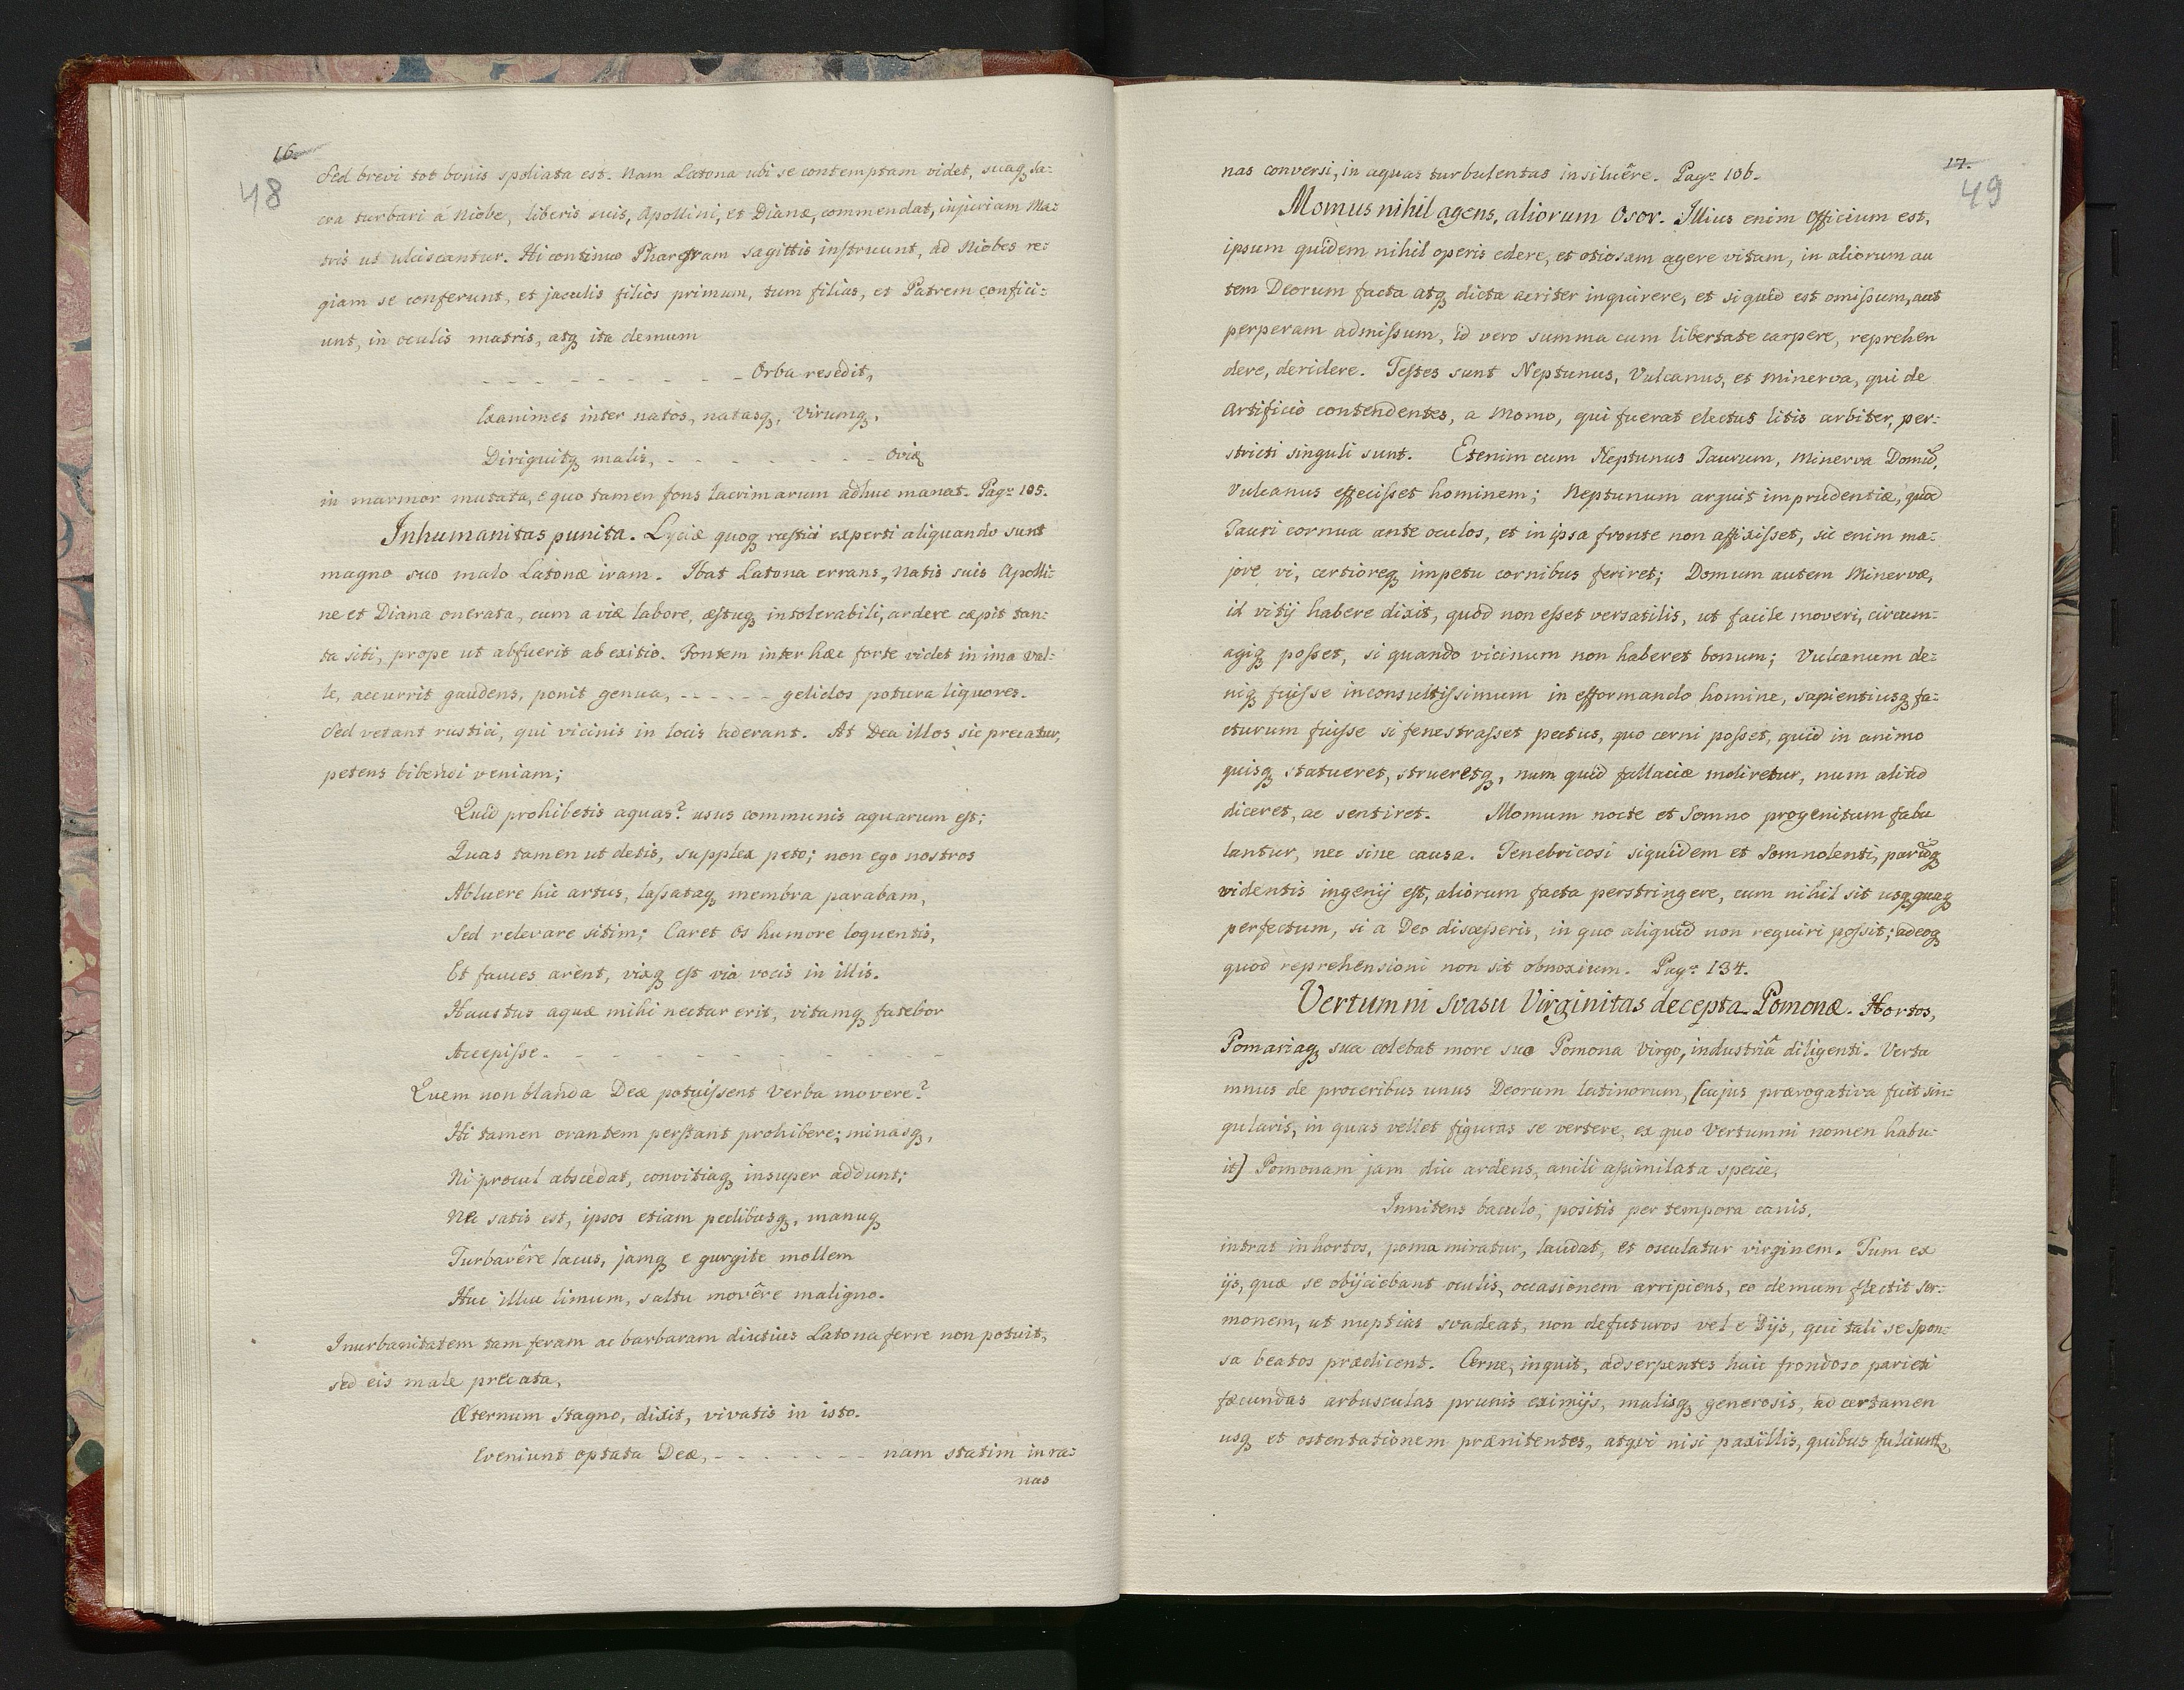 16.
48
Sed brevi tot bonis spoliata est. Nam Latona ubi se contemptam videt, suaq₃ sa:
cra turbari á Niobe, liberis suis, Apollini, et Dianæ, commendat, injuriam Ma:
tris ut ulciscantur. Hi continuo Pharetram sagittis inſtruunt, ad Niobes re:
giam se conferunt, et jaculis filios primum, tum filias, et Patrem confici:
unt, in oculis matris, atq₃ ita demum
- - - - - - - - - Orba resedit,
Exanimes inter natos, natasq₃, Virumq₃,
Diriguitq₃ malis, - - - - - - - - - 
in marmor mutata, e quo tamen fons lacrimarum adhuc manat. Pag: 105.
Inhumanitas punita. Lyciæ quoq₃ ruſtici experti aliquando sunt
magno suo malo Latonæ iram. Ibat Latona errans, Natis suis Apolli:
ne et Diana onerata, cum a viæ labore, æſtuq₃ intolerabili, ardere cæpit tan:
ta siti, prope ut abfuerit ab exitio. Fontem inter hæc forte videt in ima Val:
le, accurrit gaudens, ponit genua, - - - - - gelidos potura liquores.
Sed vetant rustici, qui vicinis in locis aderant. At Dea illos sic precatur,
petens bibendi veniam;
Quid prohibetis aquas? usus communis aquarum eſt;
Quas tamen ut detis, supplex peto; non ego nostros
Abluere hic artus, laſsataq₃ membra parabam,
Sed relevare sitim; Caret Os humore loquentis,
Et fauces arent, vixq₃ eſt via vocis in illis.
Haustus aquæ mihi nectar erit, vitamq₃ fatebor
Accepiſse. - - - - - - - - - - -
Quem non blanda Deæ potuiſsent Verba movere?
Hi tamen orantem perſtant prohibere; minasq₃,
Ni procul abscedat, convitiaq₃ insuper addunt;
Nec satis est, ipsos etiam pedibusq₃, manuq₃
Turbavêre lacus, jamq₃ e gurgite mollem
Huc illuc limum, saltu movêre maligno.
Inurbanitatem tam feram ac barbaram diutius Latona ferre non potuit,
sed eis male precata,
Æternum Stagno, dixit, vivatis in isto.
Eveniunt optata Deæ, - - - - - - - nam statim in ra:
nas
17.
49
nas conversi, in aquas turbulentas insiluêre. Pag: 106.
Momus nihil agens, aliorum Osor. Illius enim Officium est,
ipsum quidem nihil operis edere, et otiosam agere vitam, in aliorum au
tem Deorum facta atq₃ dicta acriter inquirere, et si quid est omiſsum, aut
perperam admiſsum, id vero summa cum libertate carpere, reprehen
dere, deridere. Teſtes sunt Neptunus, Vulcanus, et Minerva, qui de
artificio contendentes, a Momo, qui fuerat electus litis arbiter, per:
stricti singuli sunt. Etenim cum Neptunus Taurum, Minerva Domũ,
Vulcanus effeciſset hominem; Neptunum arguit imprudentiæ, quod
Tauri cornua ante oculos, et in ipsa fronte non affixiſset, sic enim ma:
jore vi, certioreq₃ impetu cornibus feriret; Domum autem Minervæ,
id vitij habere dixit, quod non eſset versatilis, ut facile moveri, circum:
agiq₃ poſset, si quando vicinum non haberet bonum; Vulcanum de:
niq₃ fuiſse inconsultiſsimum in efformando homine, sapientiusq₃ fa:
cturum fuiſse si fenestraſset pectus, quo cerni poſset, quid in animo
quisq₃ statueret, strueretq₃, num quid fallaciæ moliretur, num aliud
diceret, ac sentiret. Momum nocte et Somno progenitum fabu
lantur, nec sine causa. Tenebricosi siquidem et Somnolenti, parũq₃
videntis ingenij eſt, aliorum facta perstringere, cum nihil sit usq₃quaq₃
perfectum, si a Deo disceſseris, in quo aliquid non requiri poſsit; adeoq₃
quod reprehensioni non sit obnoxium. Pag: 134.
Vertumni Svasu Virginitas decepta Pomonæ. Hortos,
Pomariaq₃ sua colebat more suo Pomona Virgo, industriâ diligenti. Vertu
mnus de proceribus unus Deorum latinorum, [cujus prærogativa fuit sin:
gularis, in quas vellet figuras se vertere, ex quo Vertumni nomen habu:
it] Pomonam jam diu ardens, anili aſsimilata specie,
Innitens baculo, positis per tempora canis,
intrat in hortos, poma miratur, laudat, et osculatur virginem. Tum ex
ijs, quæ se obijciebant oculis, occasionem arripiens, eo demum flectit ser:
monem, ut nuptias svadeat, non defuturos vel e Dijs, qui tali se Spon:
sa beatos prædicent. Cerne, inquit, adserpentes huic frondoso parieti
fæcundas arbusculas prunis eximijs, malisq₃ generosis, ad certamen
usq₃ et ostentationem prænitentes, atqvi nisi paxillis, quibus fulciunt᷑